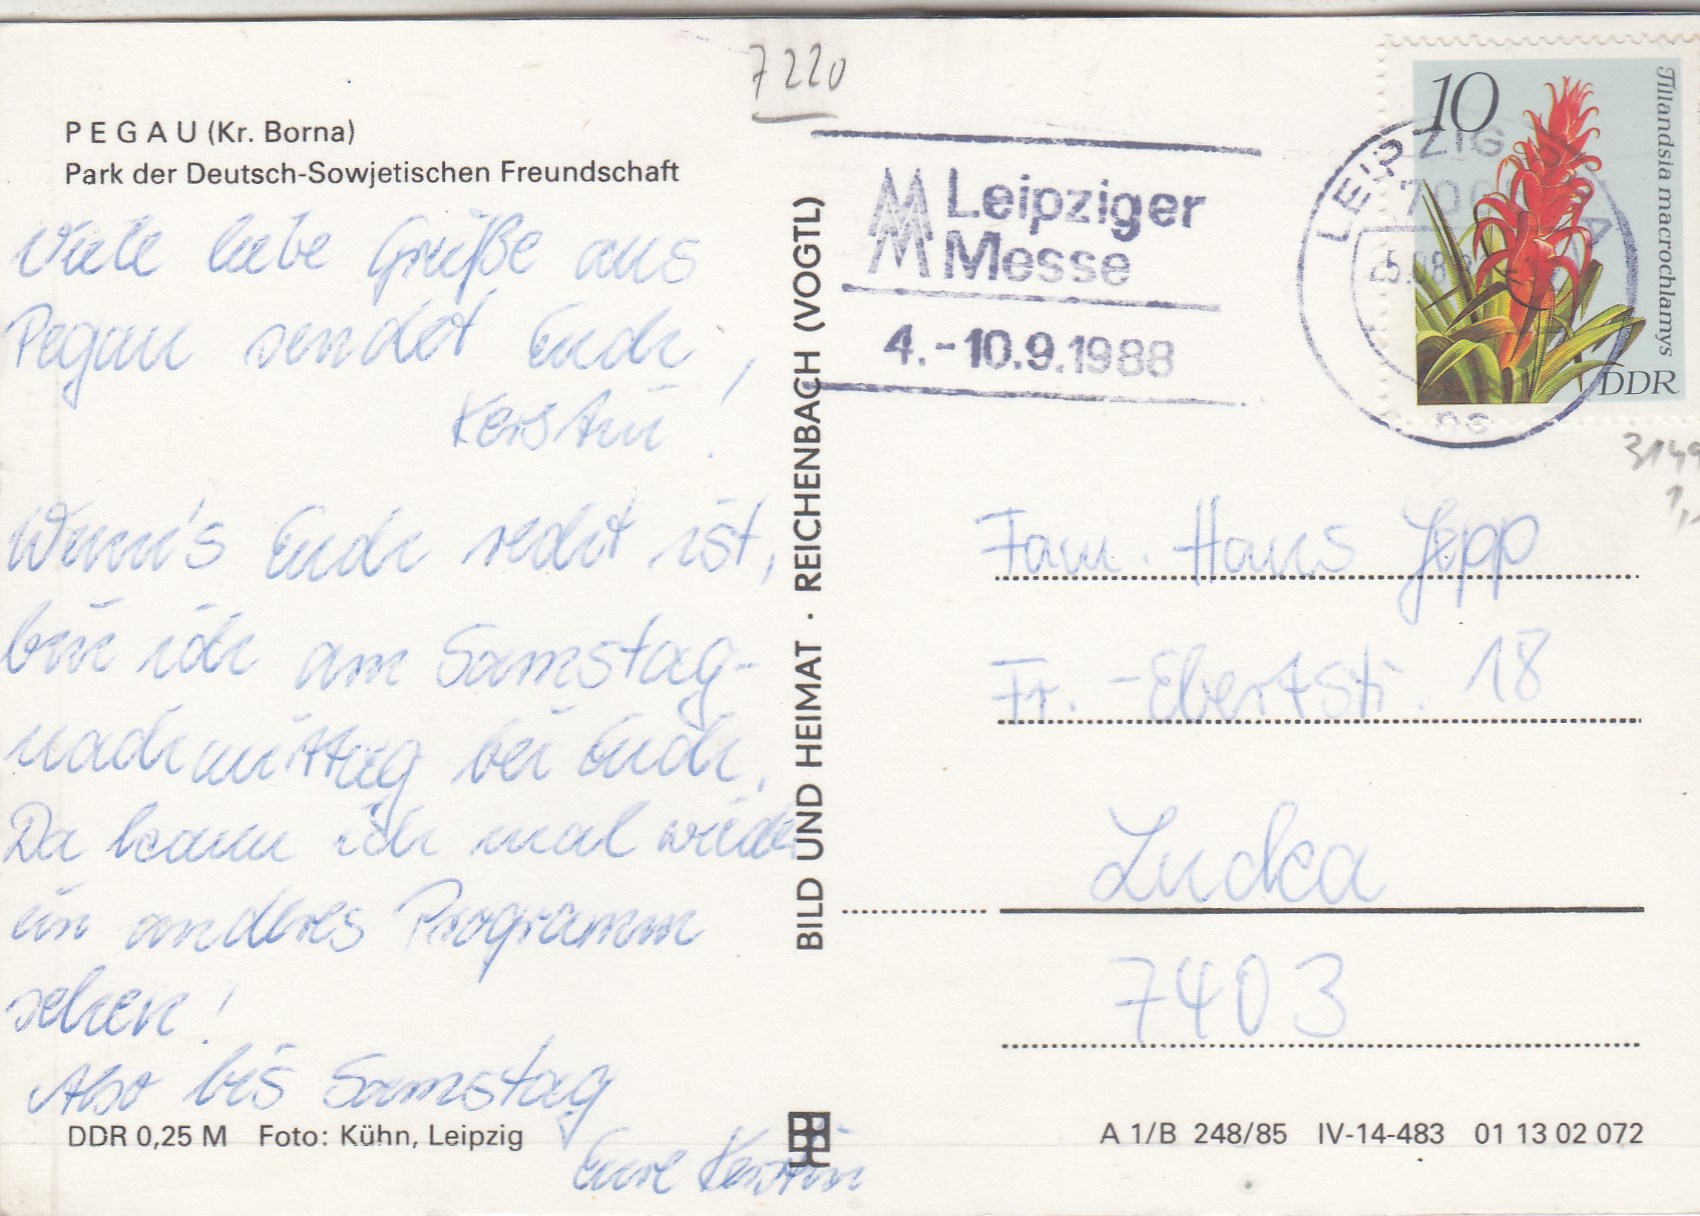 7220
PEGAU (Kr. Borna)
Park der Deutsch-Sowjetischen Freundschaft
Viele liebe Grüße aus
Pegau sendet Euch,
Kerstin!
Wenn's Euch recht ist,
bin ich am Samstag-
nachmittag bei Euch.
Da kann ich mal wieder
ein anderes Programm
sehen!
Also bis Samstag
Eure Kerstin
DDR 0,25 M Foto: Kühn, Leipzig
BILD UND HEIMAT · REICHENBACH (VOGTL)
Leipziger
Messe
4.-10.9.1988
LEIPZIG
10
Tillandsia macrochlamys
DDR
3149
Fam. Hans Jepp
Fr.-Ebertstr. 18
Lucka
7403
A 1/B 248/85 IV-14-483 01 13 02 072